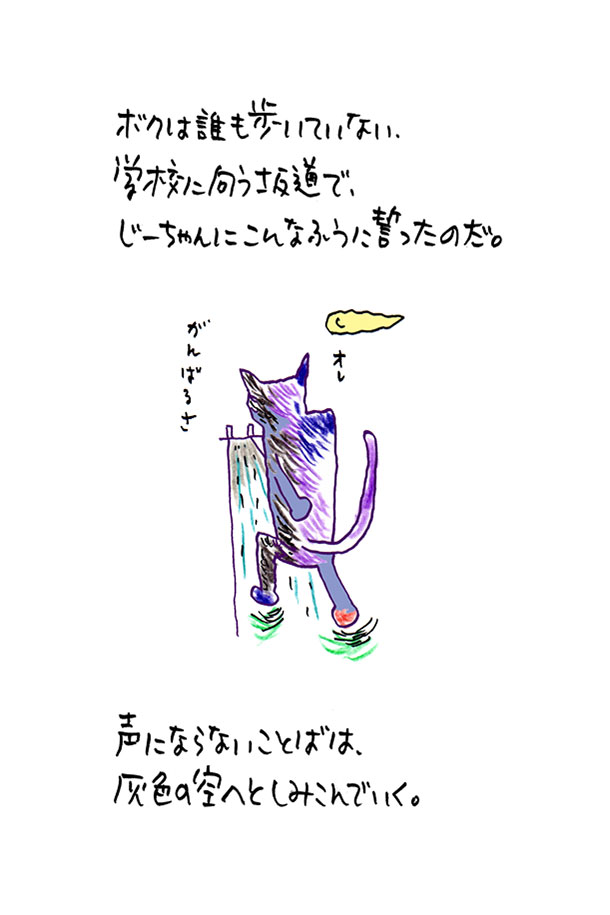 ボクは誰も歩いていない、
学校に向う坂道で、
じーちゃんにこんなふうに誓ったのだ。
オレ
がんばるさ
声にならないことばは、
灰色の空へとしみこんでいく。